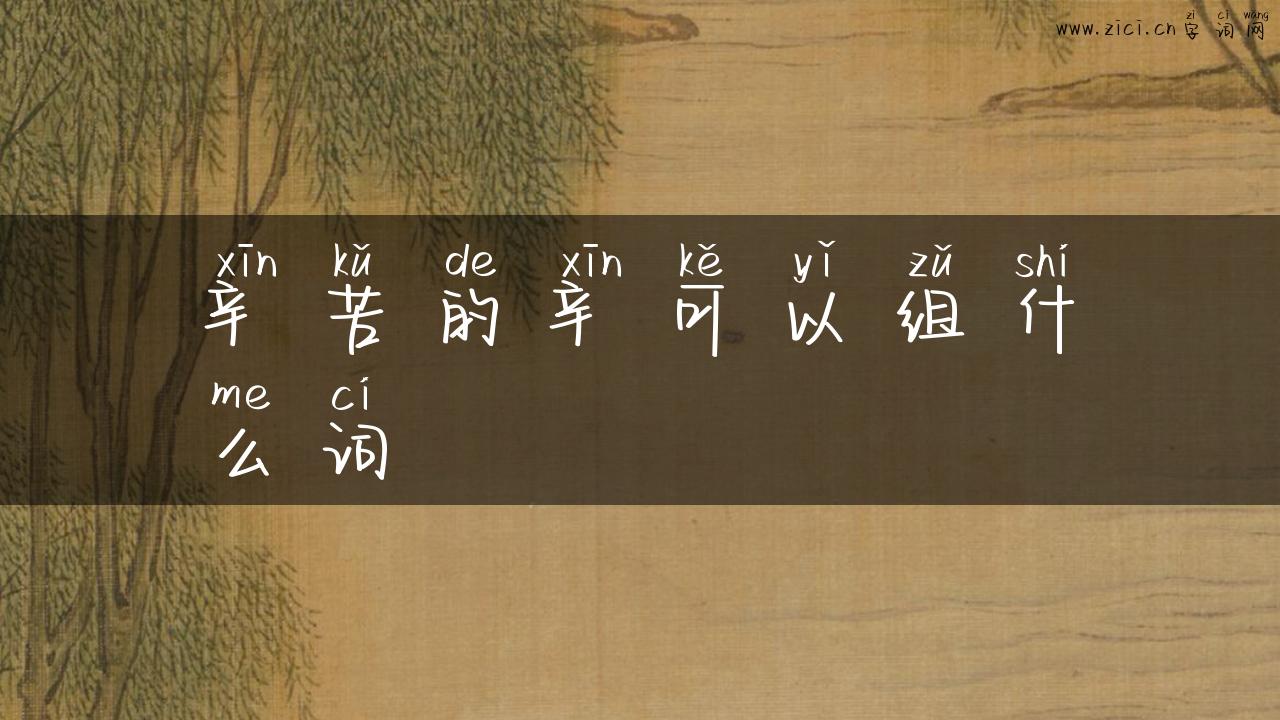 zì cí wǎng
www.zici.cn字词网
xīn kǔ de xīn kě yǐ zǔ shí
辛苦的辛可以组什
me cí
么词